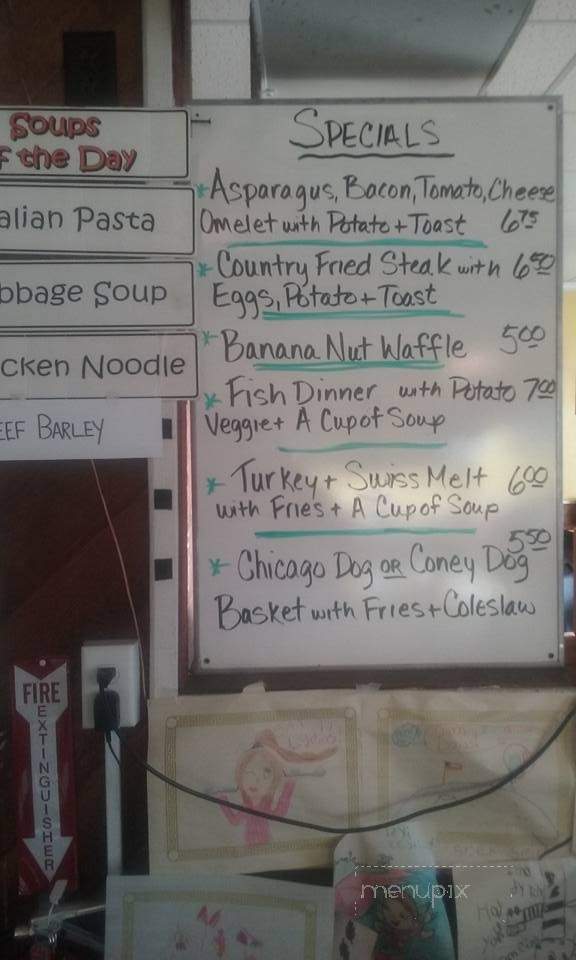 Soups
f the Day
alian Pasta
bbage Soup
cken Noodle
EEF BARLEY
SPECIALS
* Asparagus, Bacon, Tomato, Cheese
Omelet with Potato + Toast 6.75
* Country Fried Steak with 6.50
Eggs, Potato + Toast
* Banana Nut Waffle 5.00
* Fish Dinner with Potato 7.00
Veggie + A Cup of Soup
* Turkey + Swiss Melt 6.00
with Fries + A Cup of Soup
5.50
* Chicago Dog OR Coney Dog
Basket with Fries + Coleslaw
FIRE
EXTINGUISHER
menupix